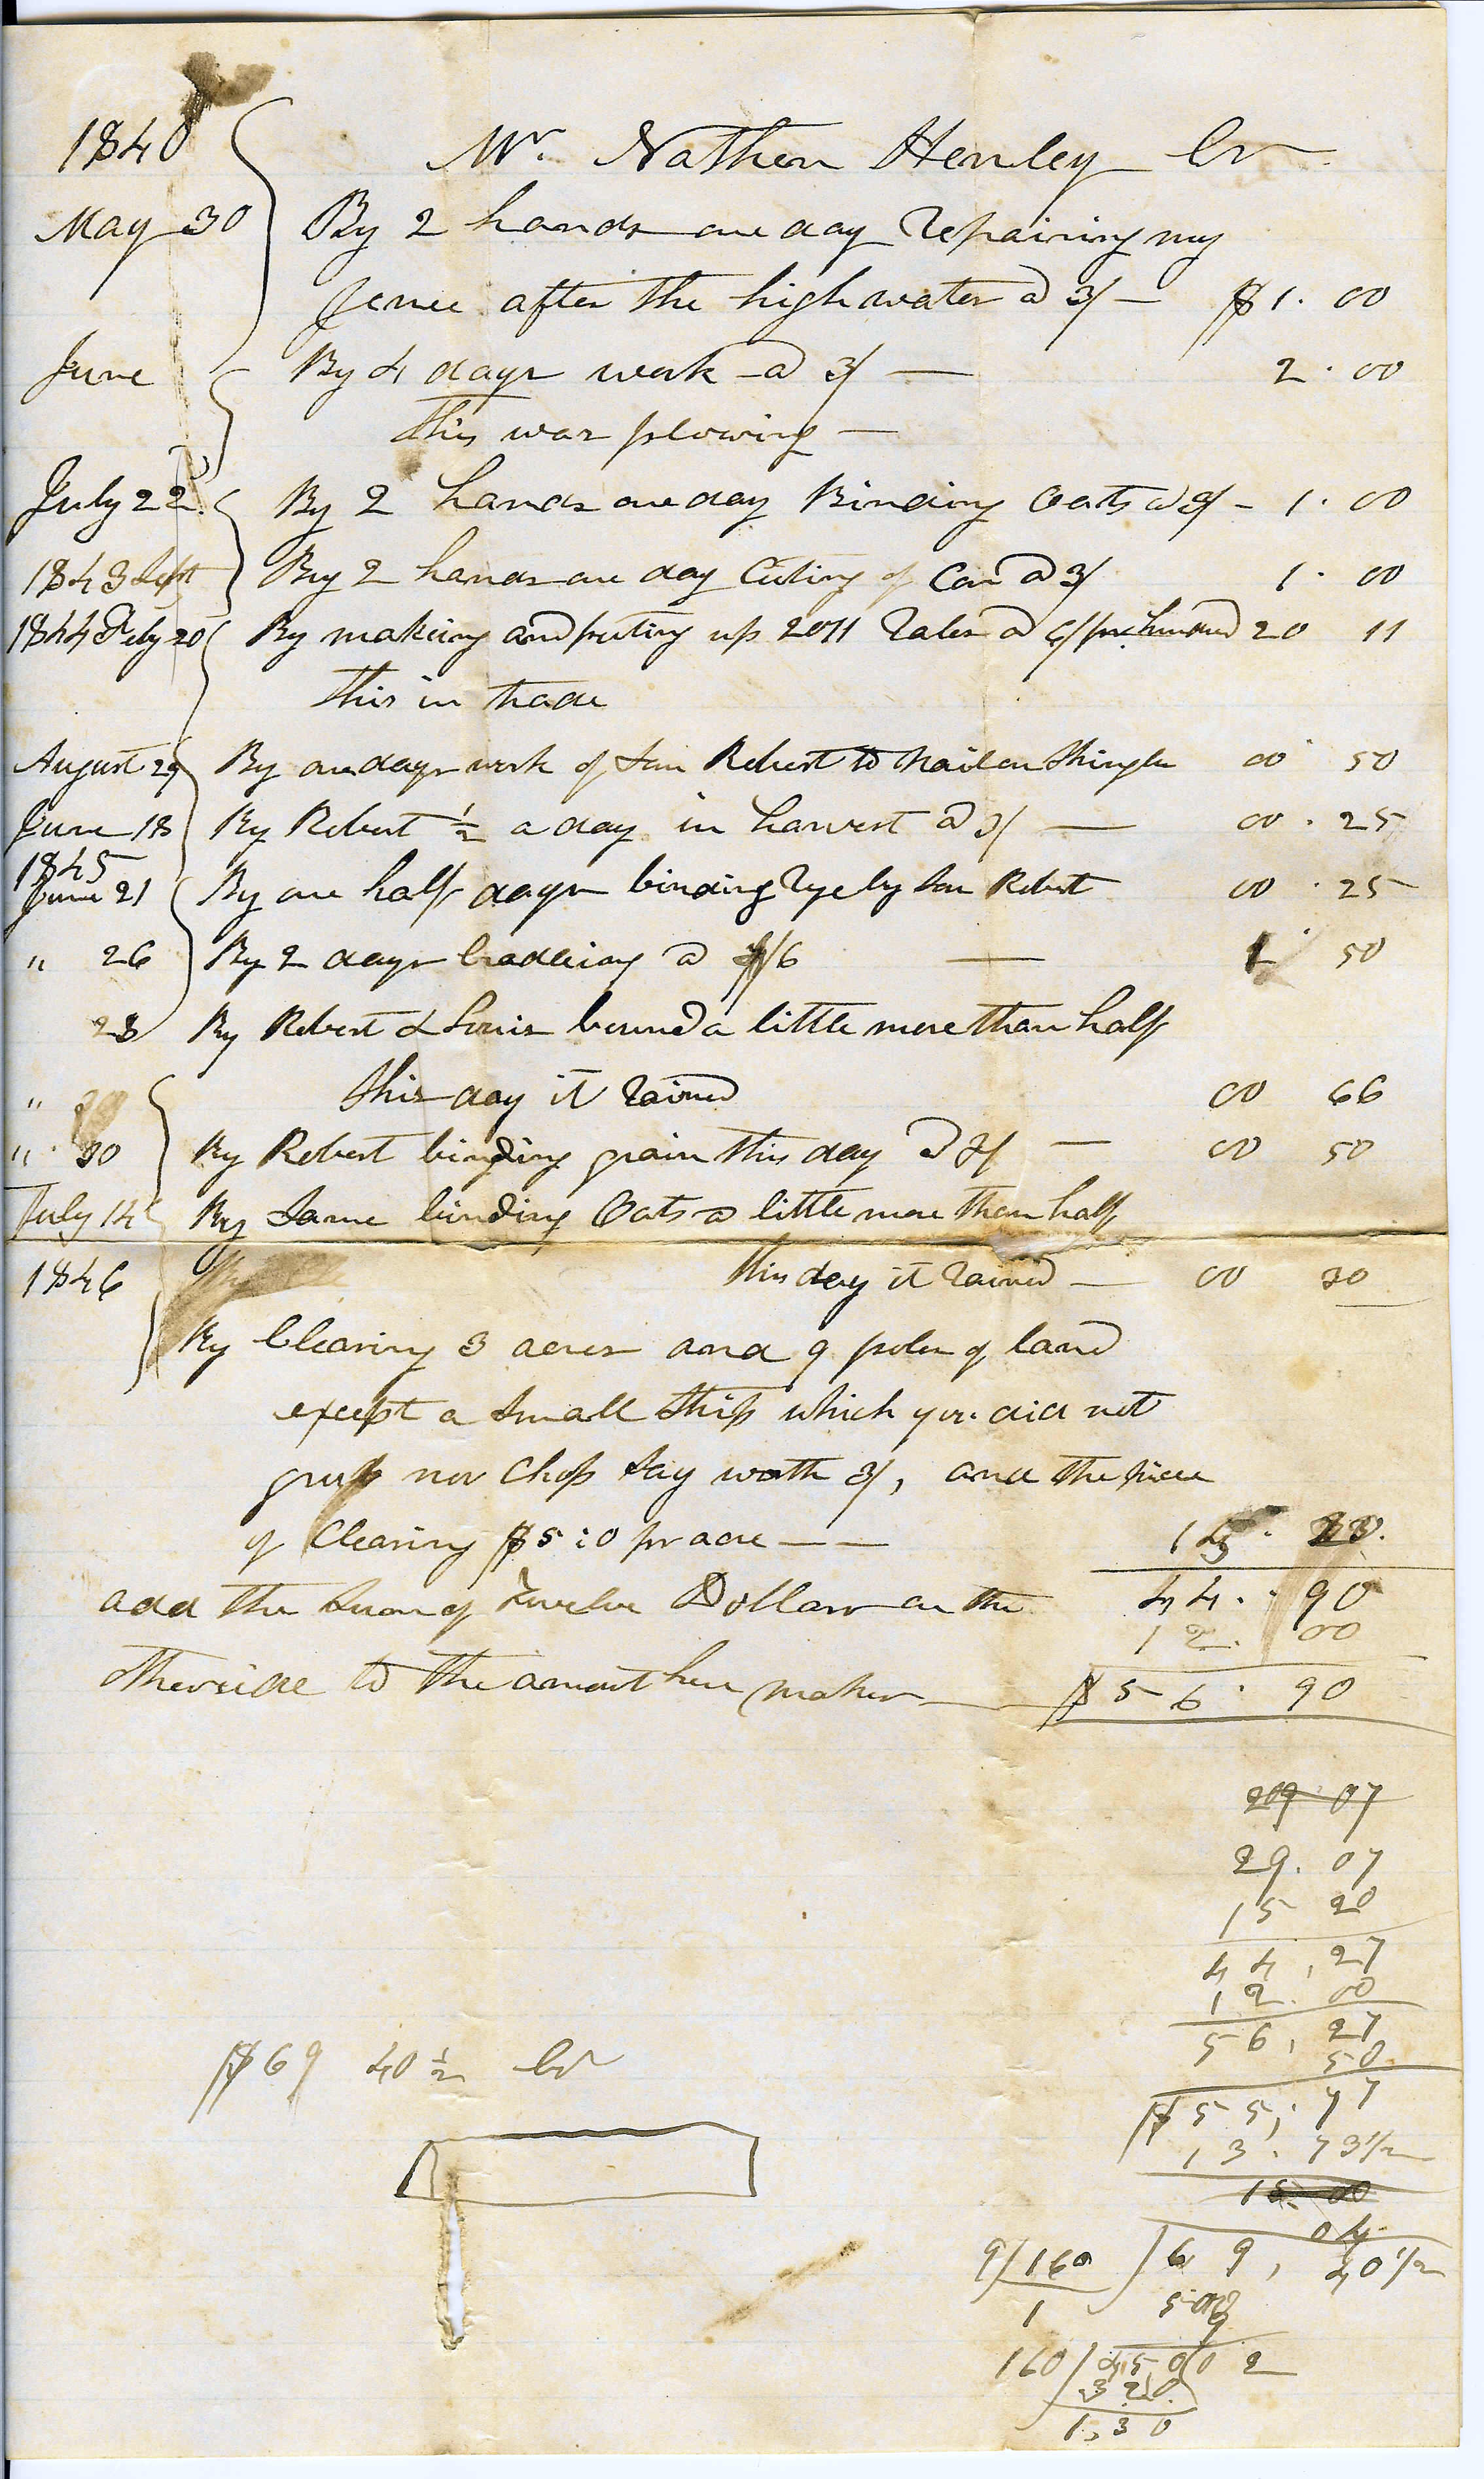 1840 Mr. Nathen Henley Cr
May 30 By 2 hands one day Repairing my
fence after the high water @ 3/ — $1. 00
June By 4 days work @ 3/ — 2. 00
this was plowing —
July 22. By 2 hands one day Binding Oats @ 3/ - 1. 00
1843 Sept By 2 hands one day Cuting of Corn @ 3/ 1. 00
1844 Feby 20 By makeing and puting up 2011 Rales @ 6/ pr. hundred 20 11
this in trade
August 29 By one days work of Son Robert to nail on Shingles 00 50
June 18 By Robert ½ a day in harvest @ 3/ — 00. 25
1845
June 21 By one half days binding Rye by Son Robert 00. 25
" 26 By 2 days Cradleing @ 4/6 — 1 50
28 By Robert & Louis bound a little more than half
" this day it rained 00 66
" 30 By Robert binding grain this day @ 3/ — 00 50
July 14 By Same binding Oats a little more than half
1846 this day it rained — 00 30
By Clearing 3 acres and 9 poles of land
except a Small Strip which you did not
grub nor Chop Say worth 3/, and the price
of Clearing $5:0 pr acre — —
44. 90
add the Sum of Twelve Dollars on the 12. 00
otherside to the amount here makes — $56. 90
209 07
29. 07
15 20
44, 27
12. 00
56, 27
50
$69 40½ Cr
$55, 77
13. 73½
15. 00
04
9/160 69, 40½
1 500
9
160/4500 2
320
1,30